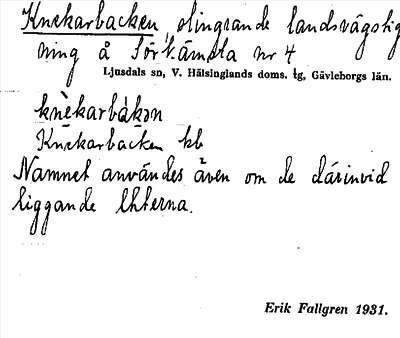 Knekarbacken, slingrande landsvägstig
ning å Sörkämsta nr 4
Ljusdals sn, V. Hälsinglands doms. tg, Gävleborgs län.
knèkarbákən
Knekarbacken kb
Namnet användes även om de därinvid
liggande
Erik Fallgren 1931.